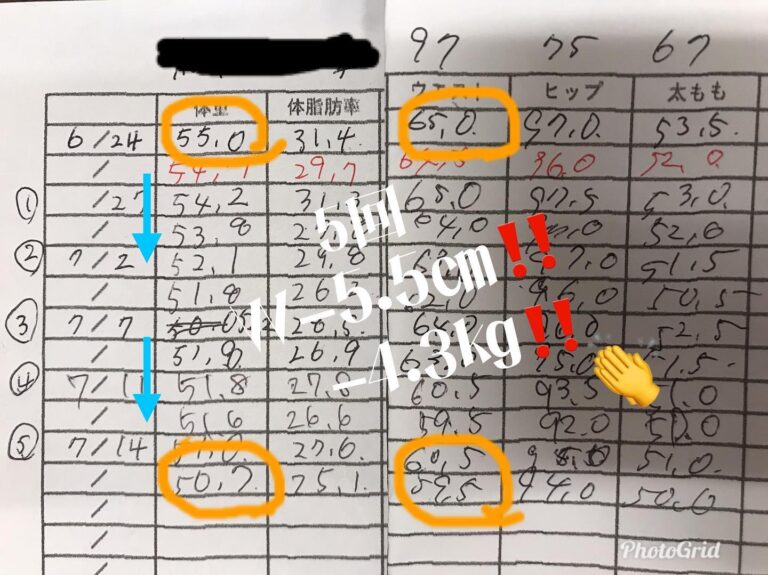 97 75 67
体重 体脂肪率 ウエスト ヒップ 太もも
6/24 55.0 31.4 65.0 97.0 53.5
/ 29.7 96.0 52.0
① /27 54.2 65.0 97.5 53.0
/ 53.8 64.0 52.0
② 7/2 52.1 29.8 97.0 51.5
/ 51.8 96.0 50.5
③ 7/7 52.5
/ 51.8 26.9
④ 7/11 51.8 27.8 60.5 93.5 51.0
/ 51.6 26.6 59.5 92.0 50.0
⑤ 7/14 27.6 60.5 51.0
/ 50.7 25.1 59.5 94.0 50.0
/
/
5回
W-5.5cm‼
-4.3kg‼
PhotoGrid